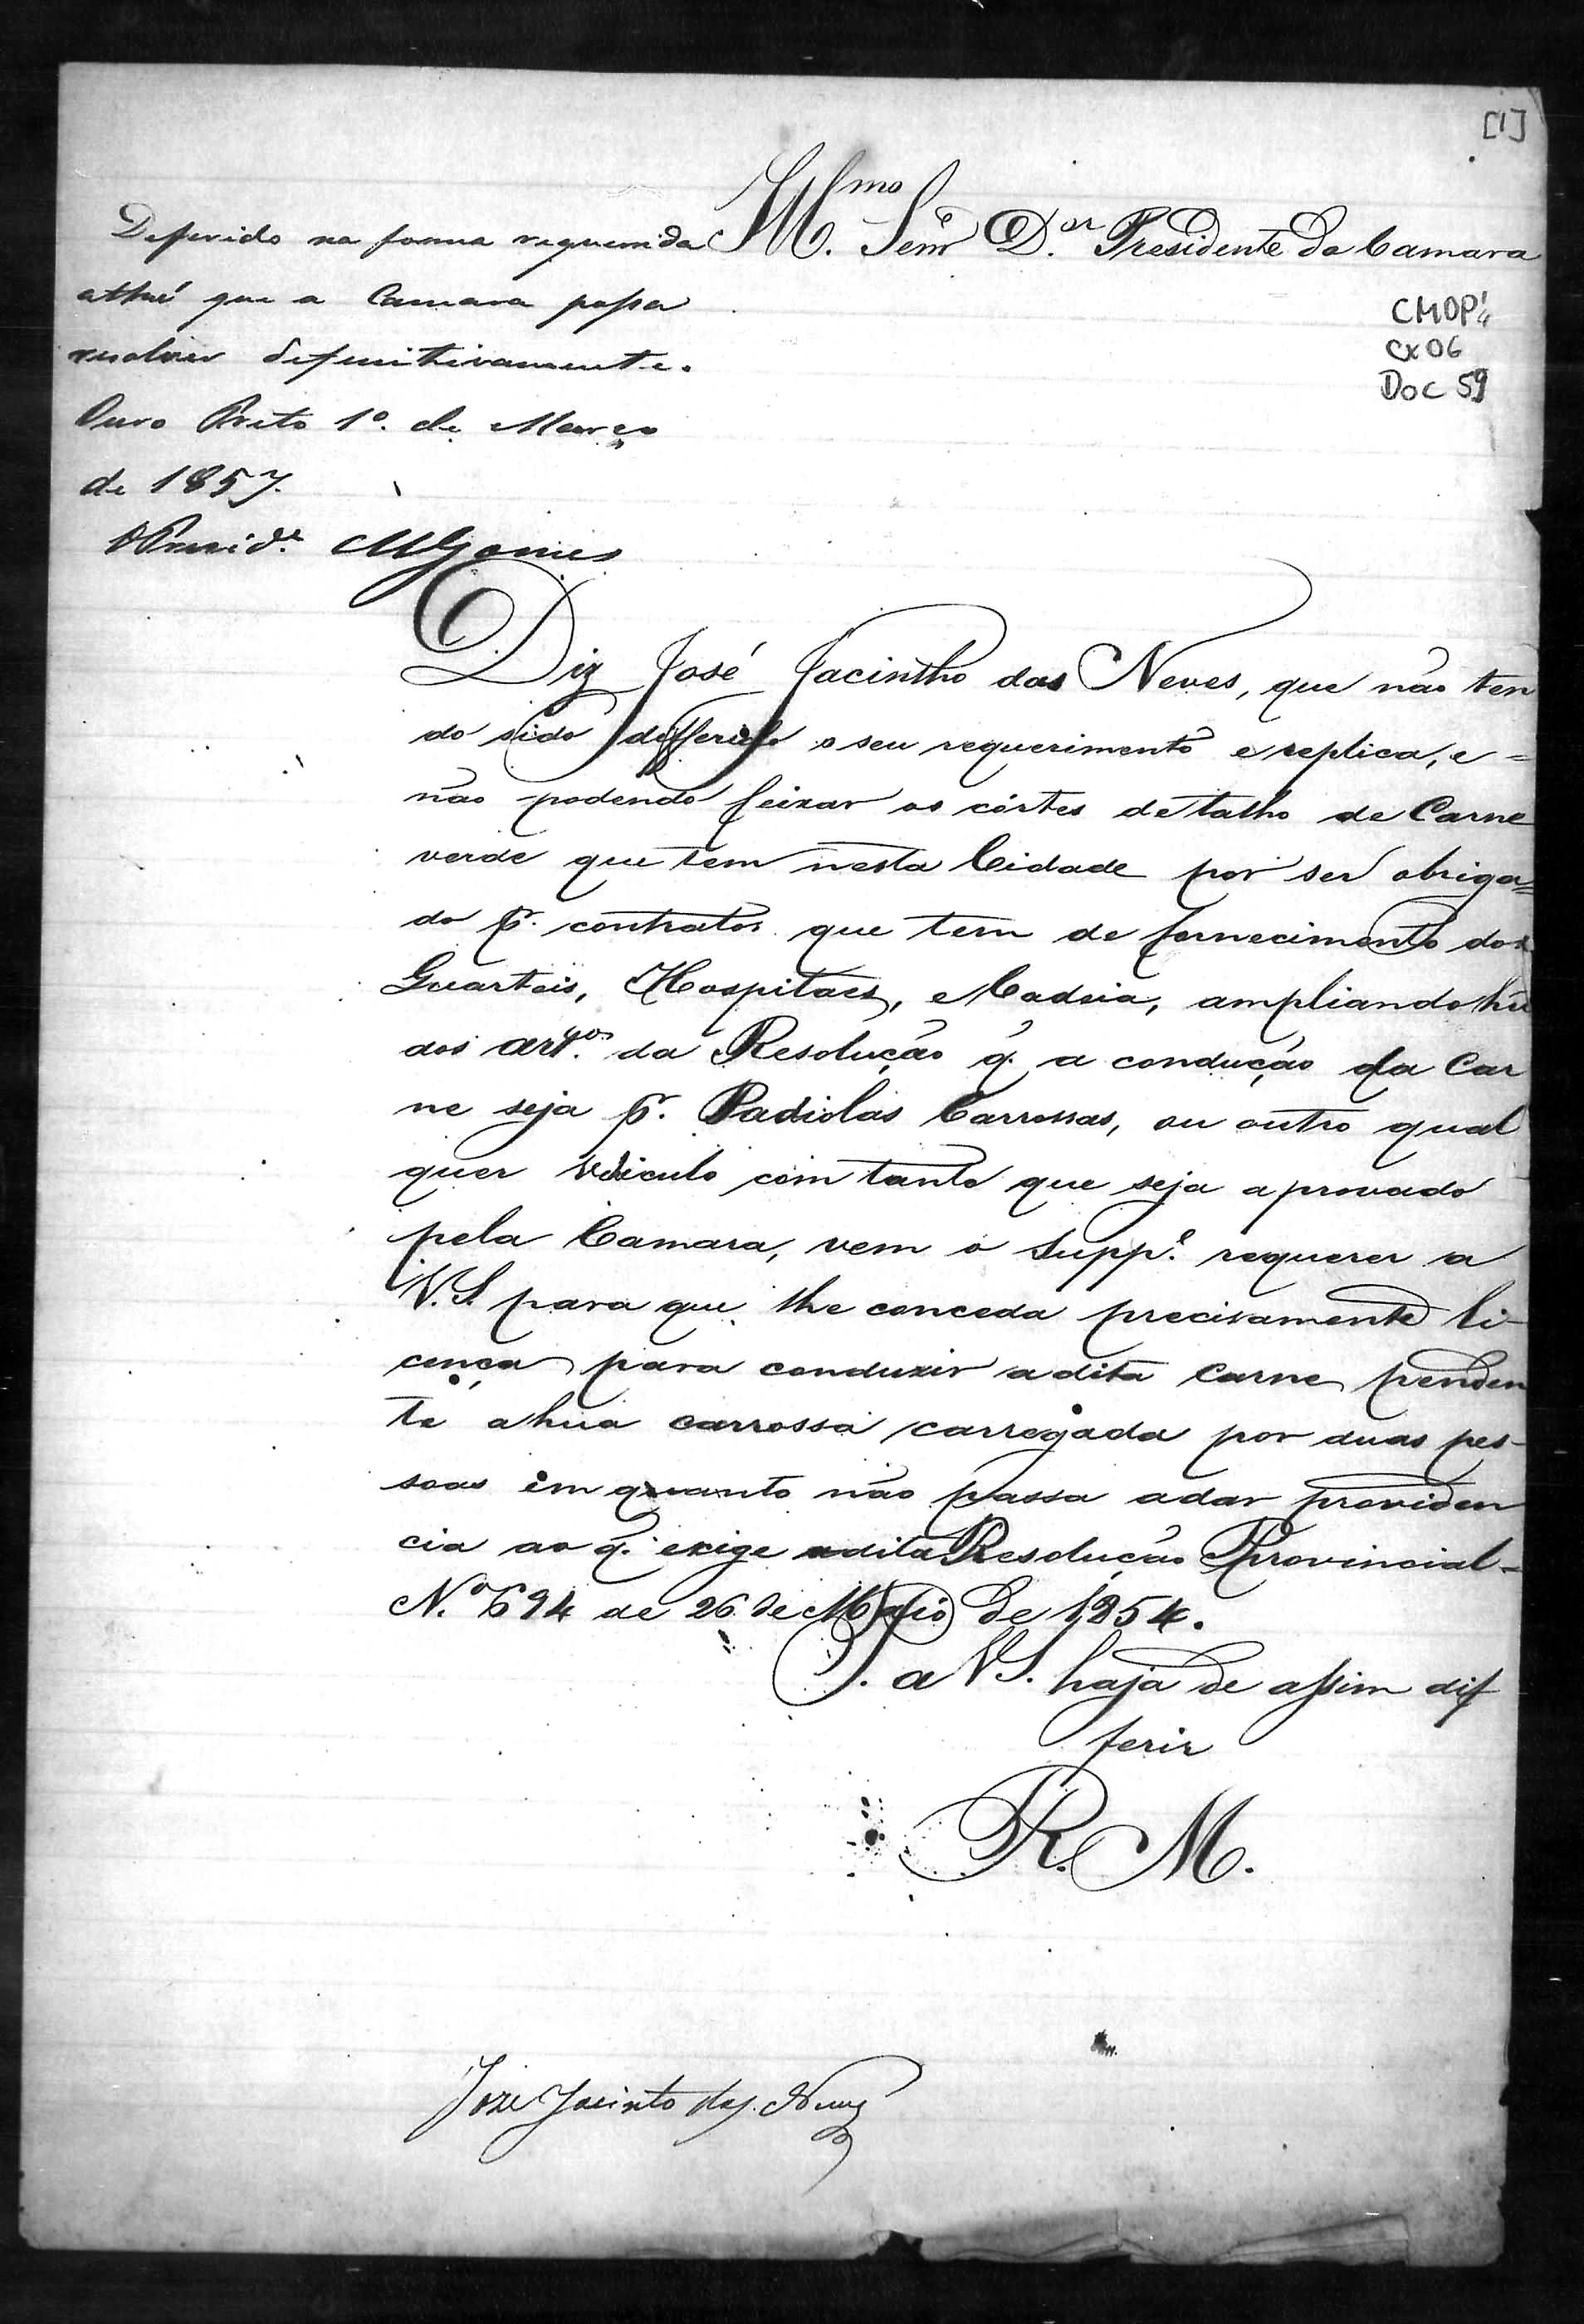 [1]
Illmo. Senr. D.or Presidente da Camara
CMOP
Cx 06
Doc 59
Deferido na forma requerida
athé que a Camara possa
resolver definitivamente.
Ouro Preto 1º. de Março
de 1857.
O Presid.e MGomes
Diz José Jacintho das Neves, que não ten
do sido defferido o seu requerimento e replica, e =
não podendo feixar os córtes de talho de Carne
verde que tem nesta Cidade por ser obriga=
do pr. contratos que tem de fornecimento dos
Quarteis, Hospitaes, e Cadeia, ampliando hũ
dos artºs. da Resolução q. a condução da Car
ne seja pr. Padiolas Carrossas, ou outro qual
quer veiculo com tanto que seja aprovado
pela Camara, vem o Suppe. requerer a
V.S. para que lhe conceda precisamente li-
cença para conduzir a dita Carne penden
te a hua carrossa carregada por duas pes-
soas em quanto não passa a dar providen
cia ao q. exige a dita Resolução Provincial-
N.º 694 de 26 de Maio de 1854.
P. a V.S. haja de assim dif
ferir
R. M.
Joze Jacinto das Neves